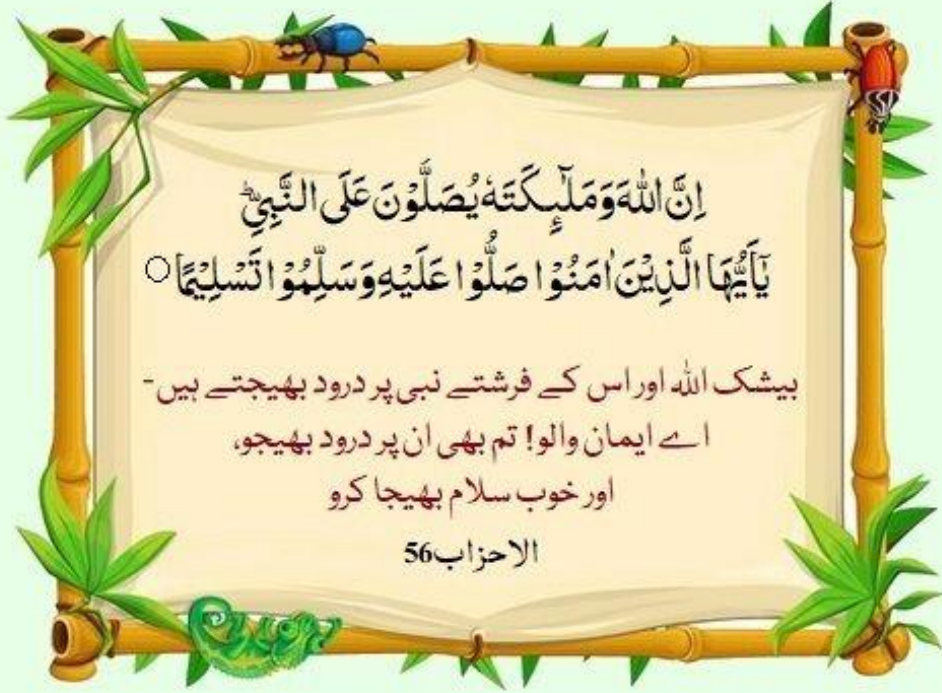 اِنَّ اللّٰهَ وَمَلٰٓئِكَتَهٗ يُصَلُّوْنَ عَلَى النَّبِيِّ ؕ
يٰۤاَيُّهَا الَّذِيْنَ اٰمَنُوْا صَلُّوْا عَلَيْهِ وَسَلِّمُوْا تَسْلِيْمًا ○
بیشک اللہ اور اس کے فرشتے نبی پر درود بھیجتے ہیں-
اے ایمان والو! تم بھی ان پر درود بھیجو،
اور خوب سلام بھیجا کرو
الاحزاب 56